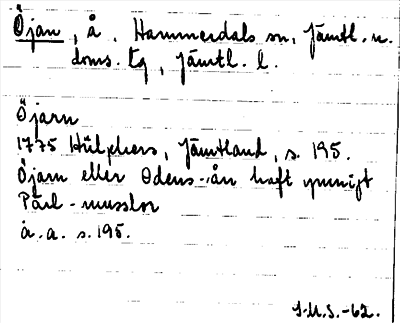 Öjan, å, Hammerdals sn, Jämtl. n.
doms. tg, Jämtl. l.
Öjarn
1775 Hülphers, Jämtland, s. 195.
Öjarn eller Odens-ån haft ymnigt
Pärl-musslor
a. a. s. 195.
S.M.S.-62.